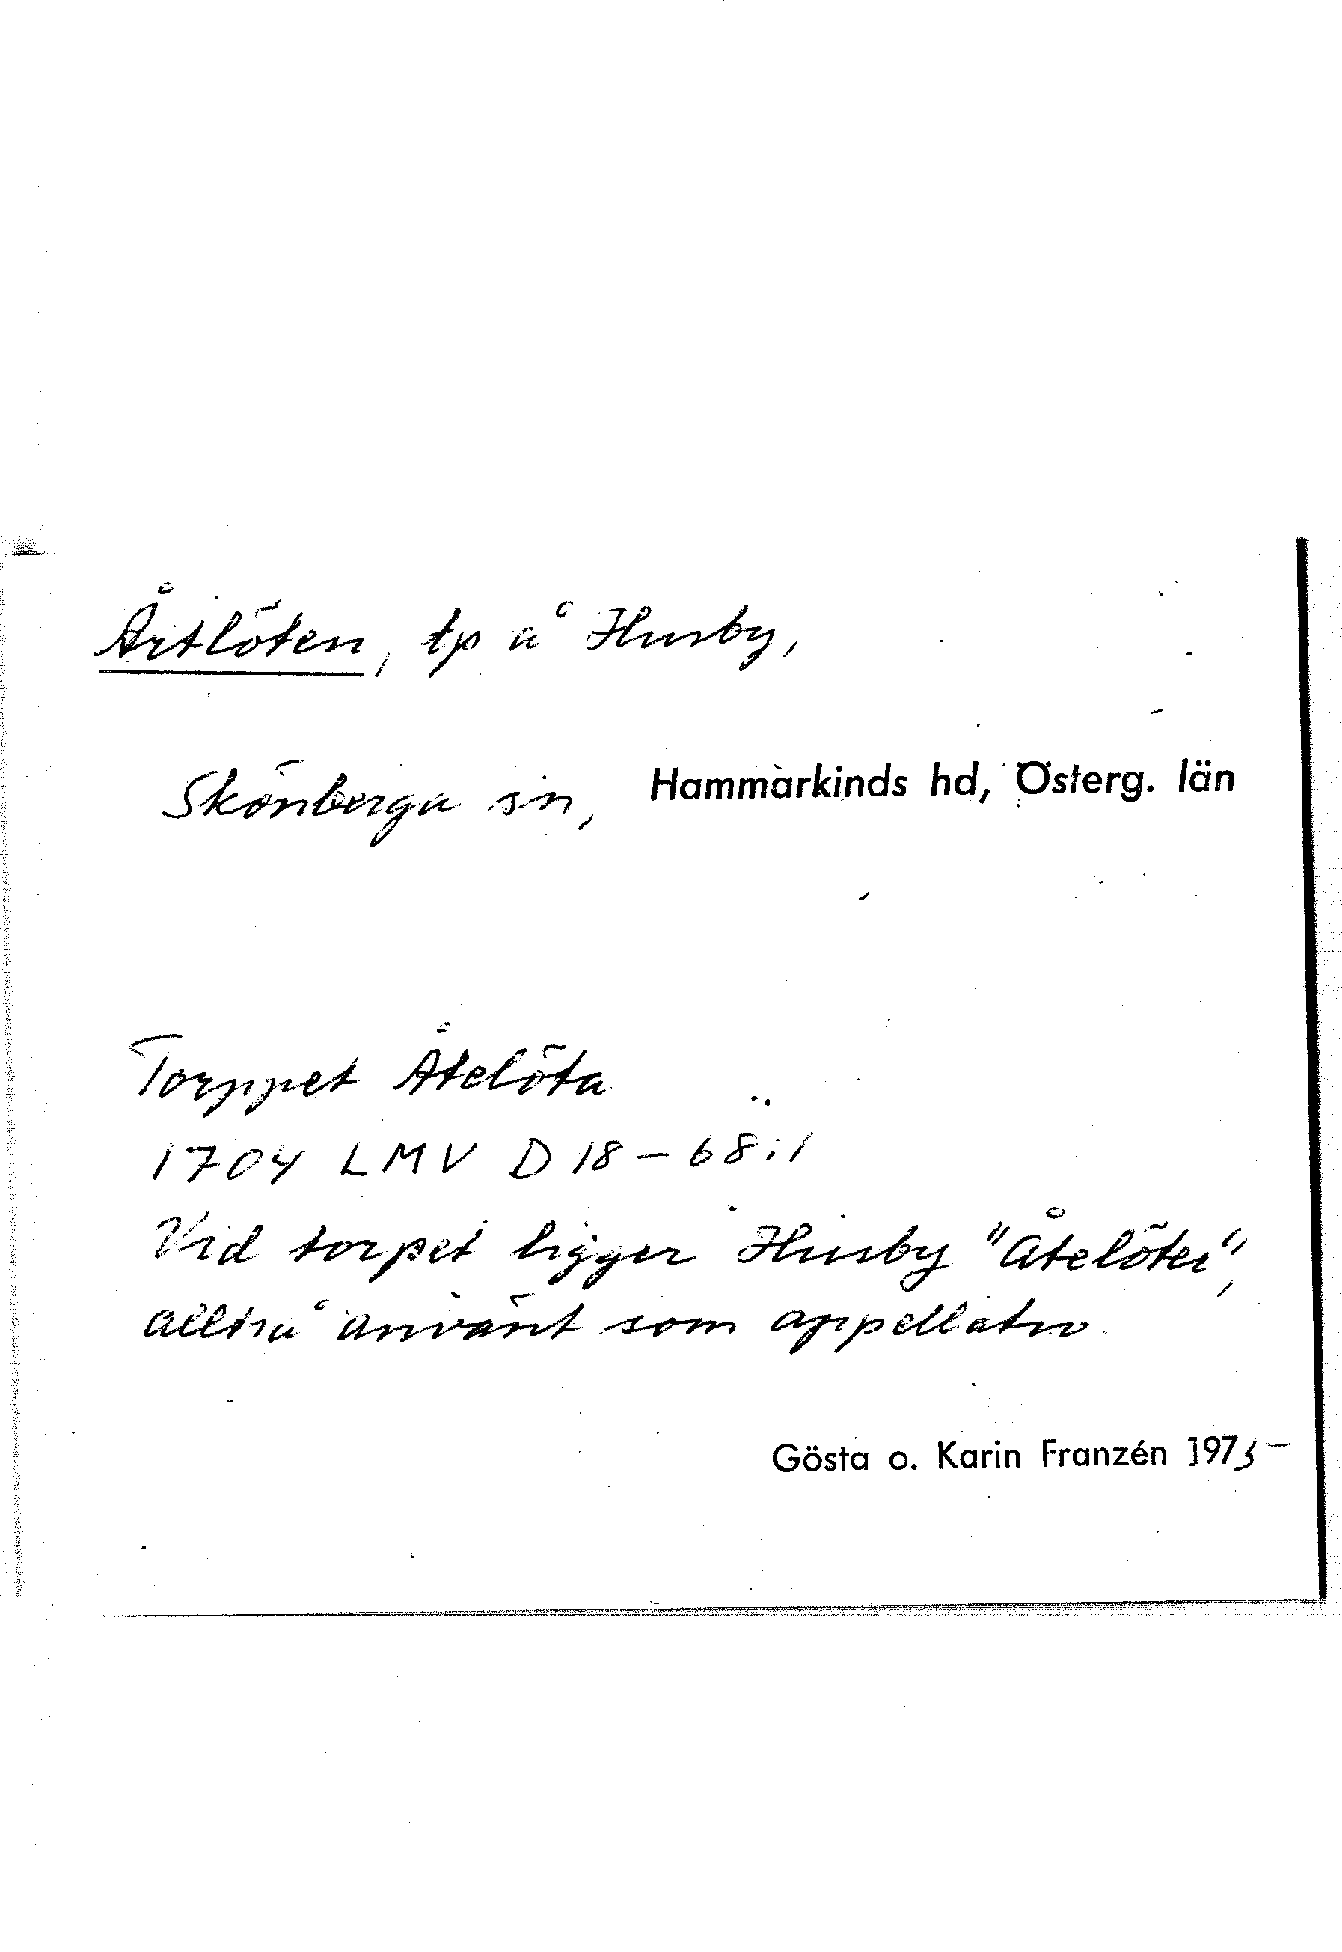 Årtlöten, tp å Husby,
Skönberga sn, Hammarkinds hd, Österg. län
Torppet Åtelöta
1704 LMV D 18-68:1
Vid torpet ligger Husby "åtelöter",
alltså använt som appellativ.
Gösta o. Karin Franzén 1975